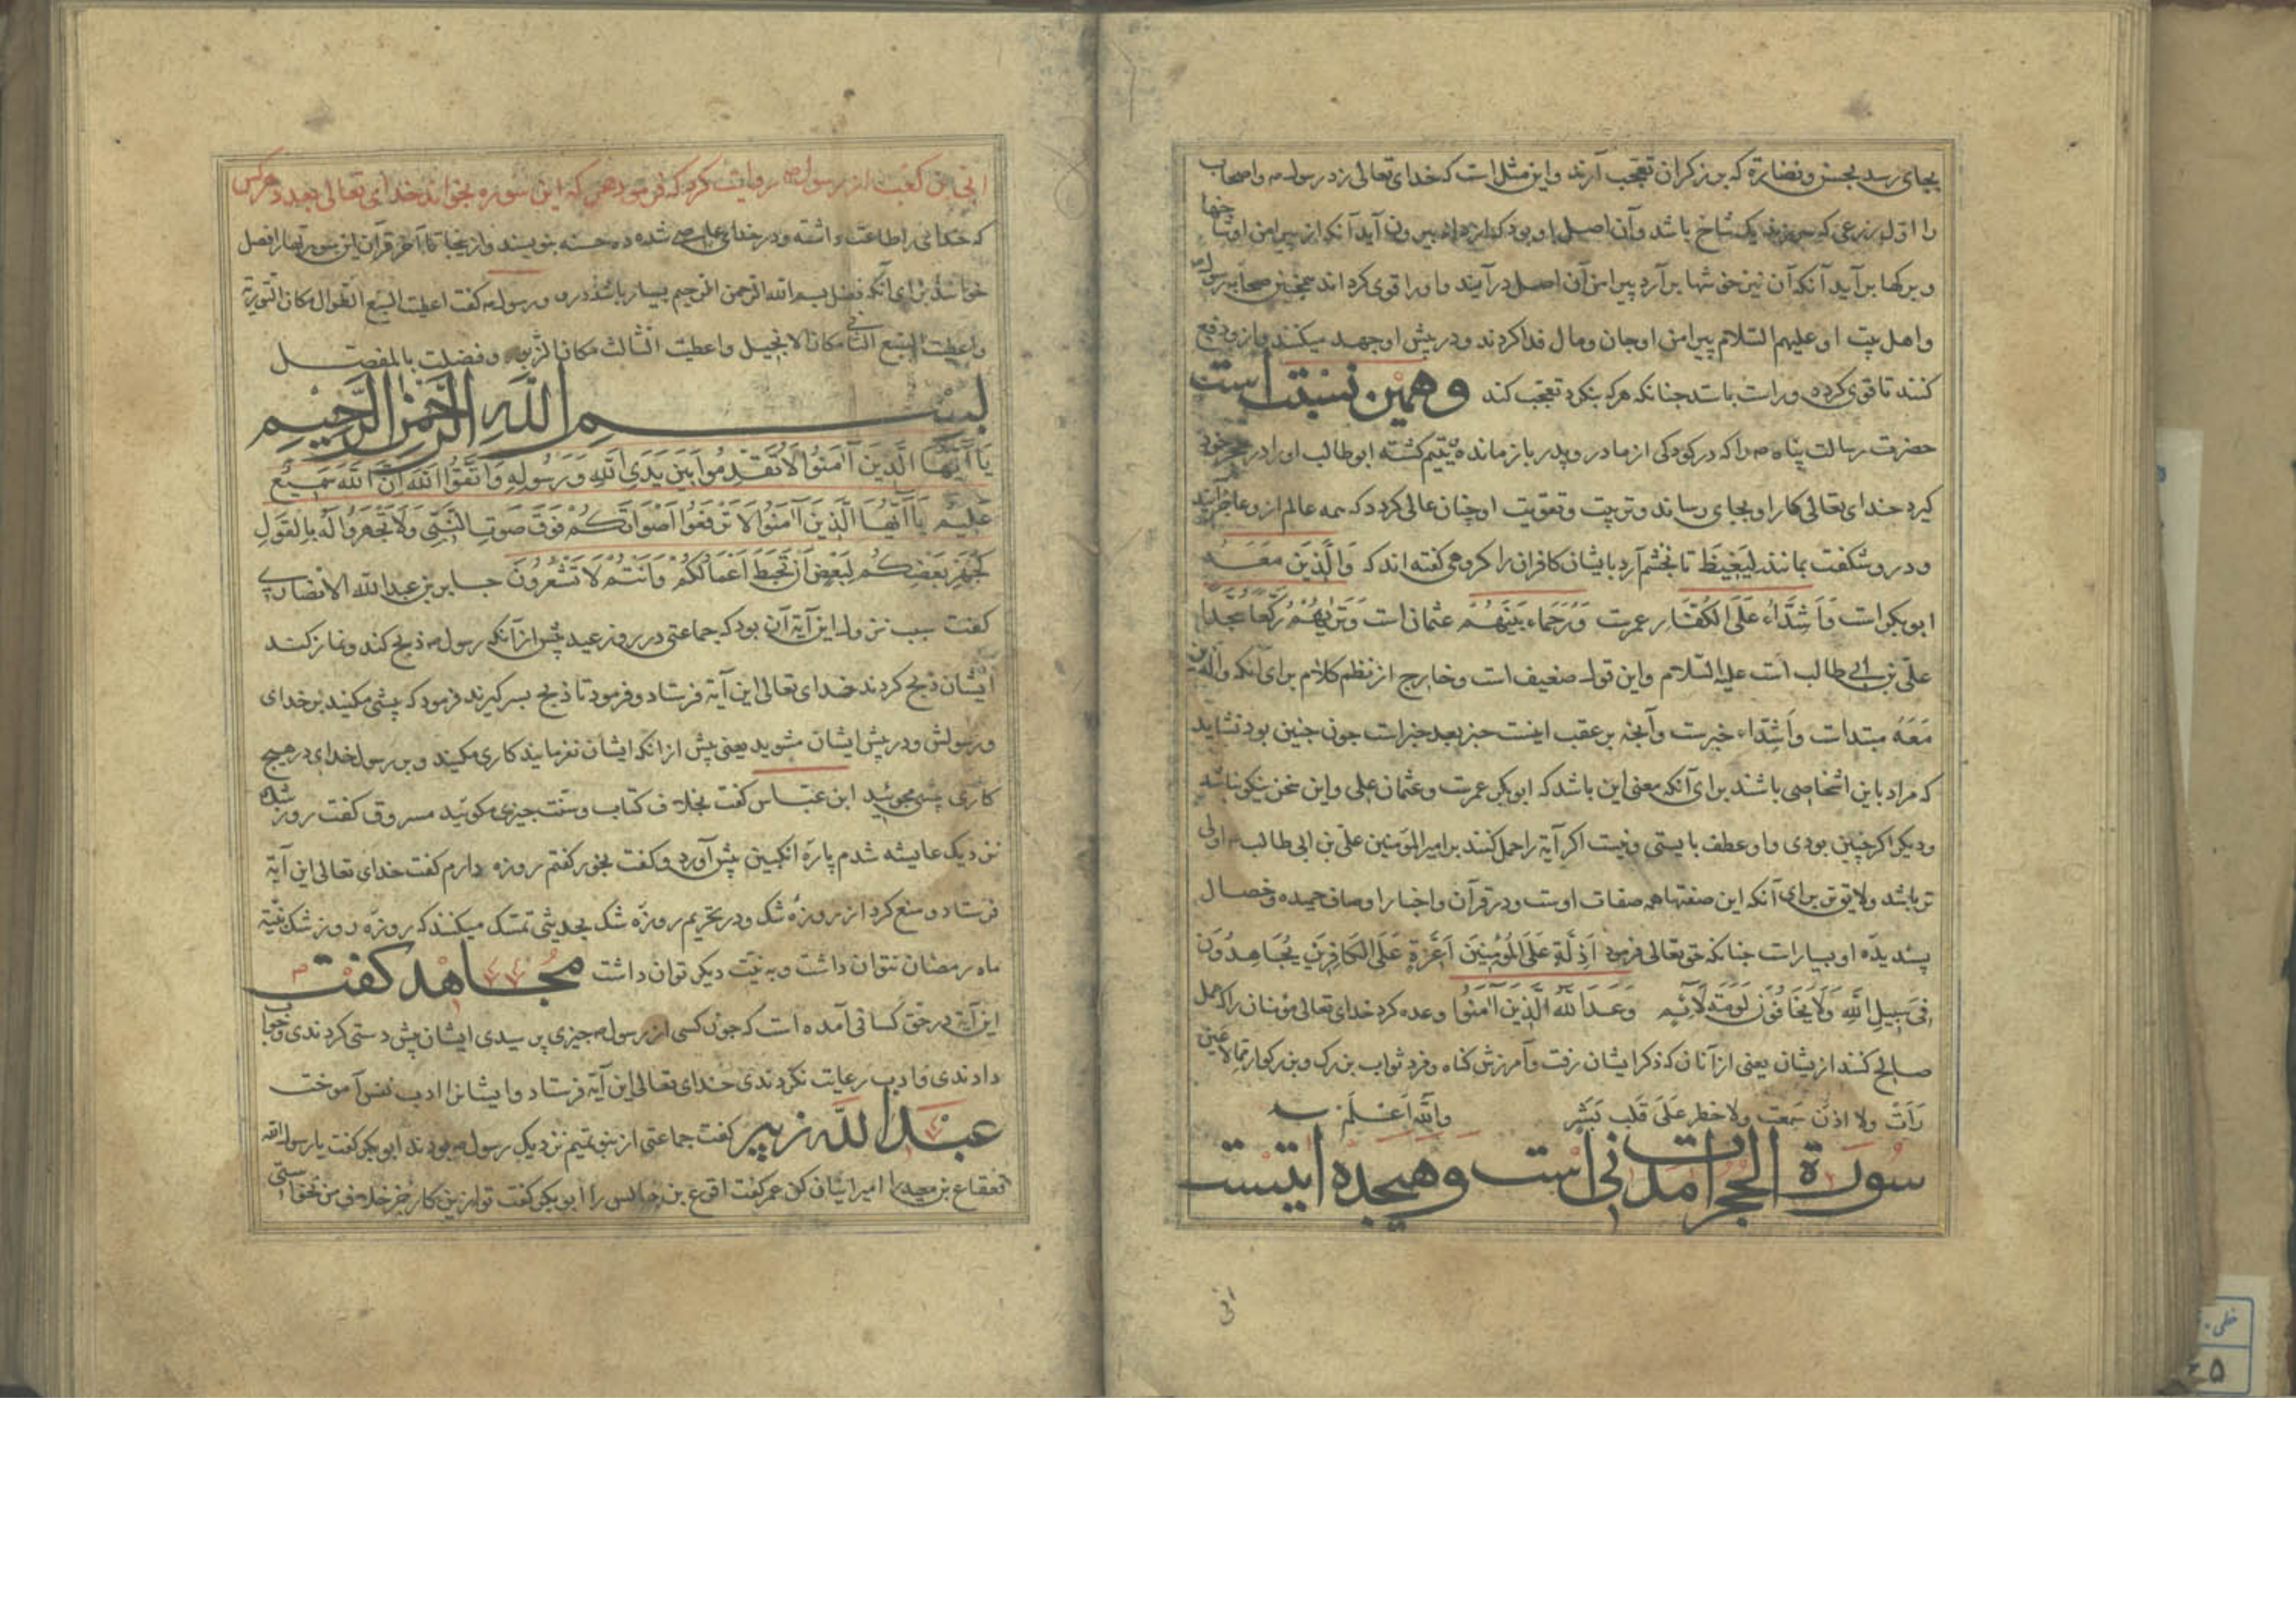 بجای رسد بحسن و نضارة که برزکران تعجب آرند و این مثل است که خدای تعالی زد رسول و اصحاب
را اول زرعی که یک شاخ باشد و آن اصل او بود که از دانه بیرون آید آنکه از پیرامن او شاخها
و برکها بر آید آنکه آن نیز خوشها بر آرد پیرامن آن اصل در آیند و او را قوی کرداند همچنین صحابه رسول
و اهل بیت او علیهم السلام پیرامن او جان و مال فدا کردند و در پیش او جهد میکنند و دفع
کنند تا قوی کرده و راست باشد جنانکه هرکه بنکرد تعجب کند وهمین نسبت است
حضرت رسالت پناه را که در کودکی از مادر و پدر باز مانده یتیم کشته ابو طالب او را در حجر خود
کیرد خدای تعالی کار او بجای رساند و تربیت و تقویت او چنان عالی کرد که همه عالم ازو عاجز آیند
و درو شکفت بمانند لیغیظ تا بخشم آرد بایشان کافران را کروهی کفته اند که والذین معه
ابو بکر است و اشداء علی الکفار عمرست ورحماء بینهم عثمان است وتریهم رکعا سجدا
علی بن ابی طالب است علیه السلام و این قول ضعیف است و خارج از نظم کلام برای آنکه والذین
معه مبتدات و اشداء خبرست و آنجه بر عقب اینست خبر بعد خبرات جون جنین بود نشاید
که مراد باین اشخاصی باشند برای آنکه معنی این باشد که ابو بکر عمرست و عثمان علی و این سخن نیکو نباشد
و دیکر اکر چنین بودی واو عطف بایستی و نیست اکر آیة را حمل کنند بر امیر المومنین علی بن ابی طالب اولی
تر باشد و لایق تر برای آنکه این صفتها همه صفات اوست و در قرآن و اخبار اوصاف حمیده و خصال
پسندیده او بسیارات جنانکه حق تعالی فرمود اذلة علی المؤمنین اعزة علی الکافرین یجاهدون
فی سبیل الله ولا یخافون لومة لائم وعد الله الذین آمنوا وعده کرد خدای تعالی مؤمنان را که عمل
صالح کنند ازیشان یعنی از آنان که ذکر ایشان رفت و آمرزش کناه و فرد ثواب بزرک و بزرکوار مالا عین
رأت ولا اذن سمعت ولا خطر علی قلب بشر والله اعلم
سورة الحجرات مدنی است وهیجده ایتست
ابی
ابی بن کعب از رسول روایت کرد که فرمود هر که این سوره بخواند خدای تعالی بعدد هرکس
که خدای را طاعت داشته و در خدای عاصی شده ده حسنه بنویسند و از ینجا تا آخر قرآن این سورتها را فصل
خوانند برای آنکه فصل بسم الله الرحمن الرحیم بسیار باشد درو و رسول کفت اعطیت السبع الطوال مکان التوریة
واعطیت السبع الثانی مکان الانجیل واعطیت الثالث مکان الزبور وفضلت بالمفصل
بسم الله الرحمن الرحیم
یا ایها الذین آمنوا لا تقدموا بین یدی الله ورسوله واتقوا الله ان الله سمیع
علیم یا ایها الذین آمنوا لا ترفعوا اصواتکم فوق صوت النبی ولا تجهروا له بالقول
کجهر بعضکم لبعض ان تحبط اعمالکم وانتم لا تشعرون جابر بن عبدالله الانصاری
کفت سبب نزول این آیة آن بود که جماعتی در روز عید پیش از آنکه رسول ذبح کند و نماز کند
ایشان ذبح کردند خدای تعالی این آیة فرستاد و فرمود تا ذبح بسر کیرند فرمود که پیشی مکنید بر خدای
و رسولش و در پیش ایشان مشوید یعنی پیش از انکه ایشان نفرمایند کاری مکنید و بر رسول خدای در هیچ
کاری پیشی مجوئید ابن عباس کفت بخلاف کتاب و سنت جیزی مکوئید مسروق کفت روز شک
نزدیک عایشه شدم پارۀ انکبین پیش آورد و کفت بخور کفتم روزه دارم کفت خدای تعالی این آیة
فرستاد و منع کرد از روزۀ شک و در تحریم روزه شک بحدیثی تمسک میکنند که روزه روز شک بنیة
ماه رمضان نتوان داشت و به نیت دیکر توان داشت مجاهد کفت
این آیة در حق کسانی آمده است که جون کسی از رسول جیزی پرسیدی ایشان پیش دستی کردندی و جواب
دادندی و ادب رعایت نکردندی خدای تعالی این آیة فرستاد و ایشانرا ادب نفس آموخت
عبد الله زبیر کفت جماعتی از بنو تمیم نزدیک رسول بودند ابو بکر کفت یا رسول الله
قعقاع بن معبد را امیر ایشان کن عمر کفت اقرع بن حابس را ابو بکر کفت تو ازین کار جز خلاف من نخواستی
خطی
۵